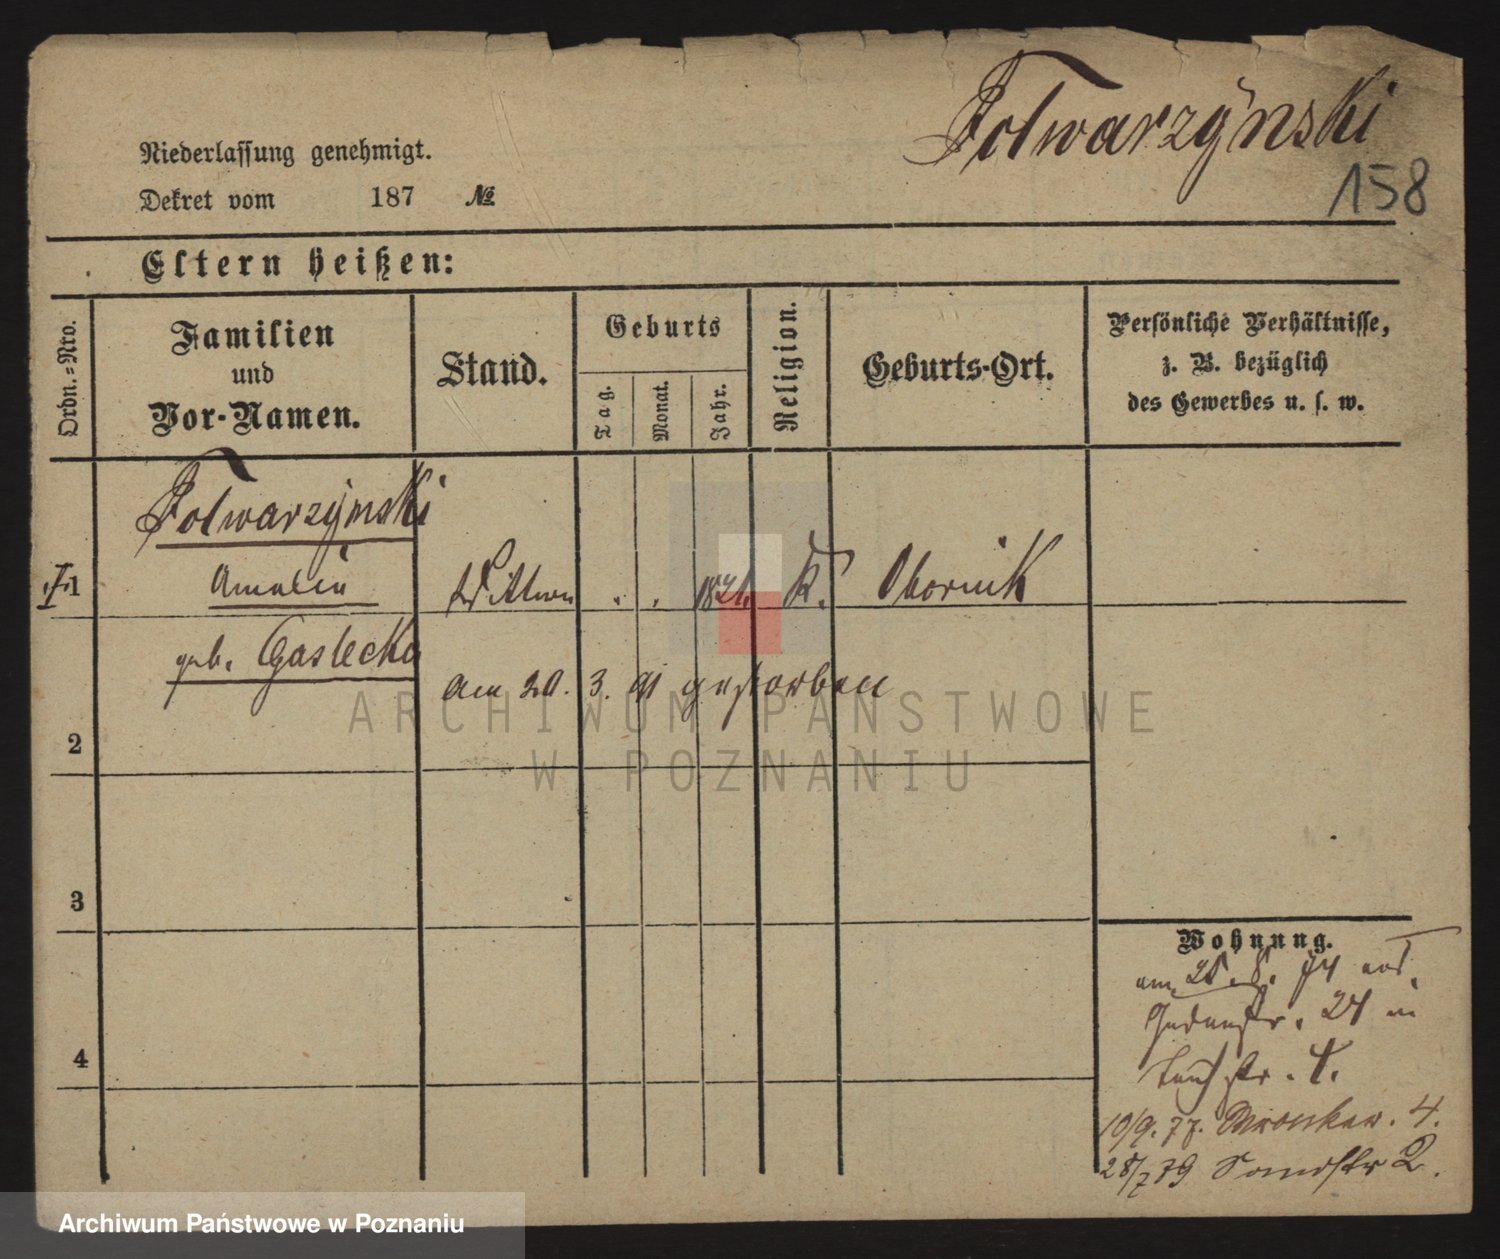 Folwarzynski
158
Niederlassung genehmigt.
Dekret vom 187 No
Eltern heißen:
Ordn.=Nro.
Familien
und
Vor-Namen.
Stand.
Geburts
Tag.
Monat.
Jahr.
Religion.
Geburts-Ort.
Persönliche Verhältnisse,
z. B. bezüglich
des Gewerbes u. s. w.
Folwarzynski
1 Amalia Wittwe . . 1821. K. Obornik
geb. Gaslecka
am 20. 3. 91 gestorben
2
3
4
Wohnung.
am 25. 8. 74
Judenstr. 24 in
str. 4.
10/9. 77. Wronker. 4.
28/7 79 Sandstr 2.
ARCHIWUM PAŃSTWOWE
W POZNANIU
Archiwum Państwowe w Poznaniu